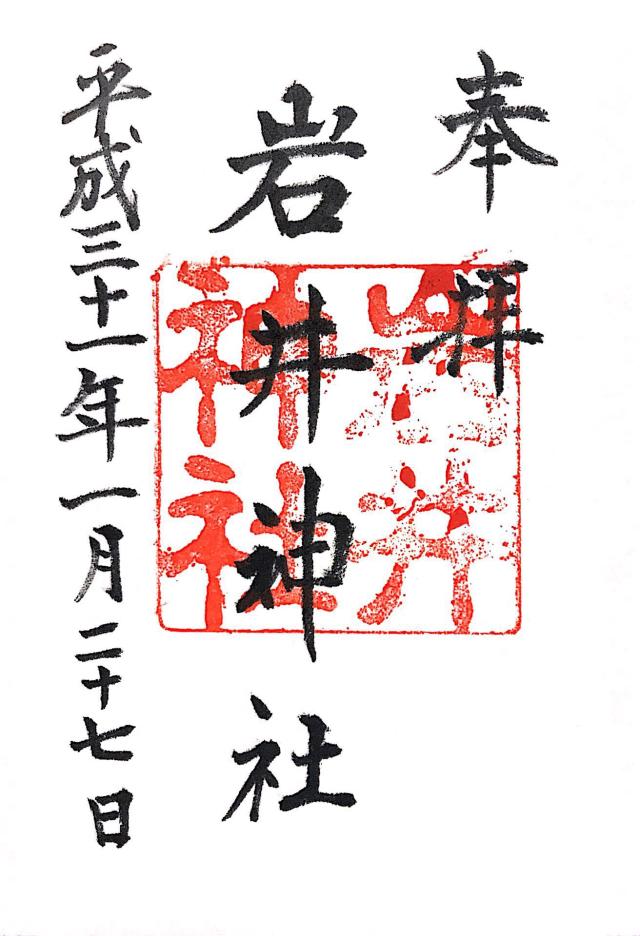 奉拝
岩井神社
平成三十一年一月二十七日
岩井
神社